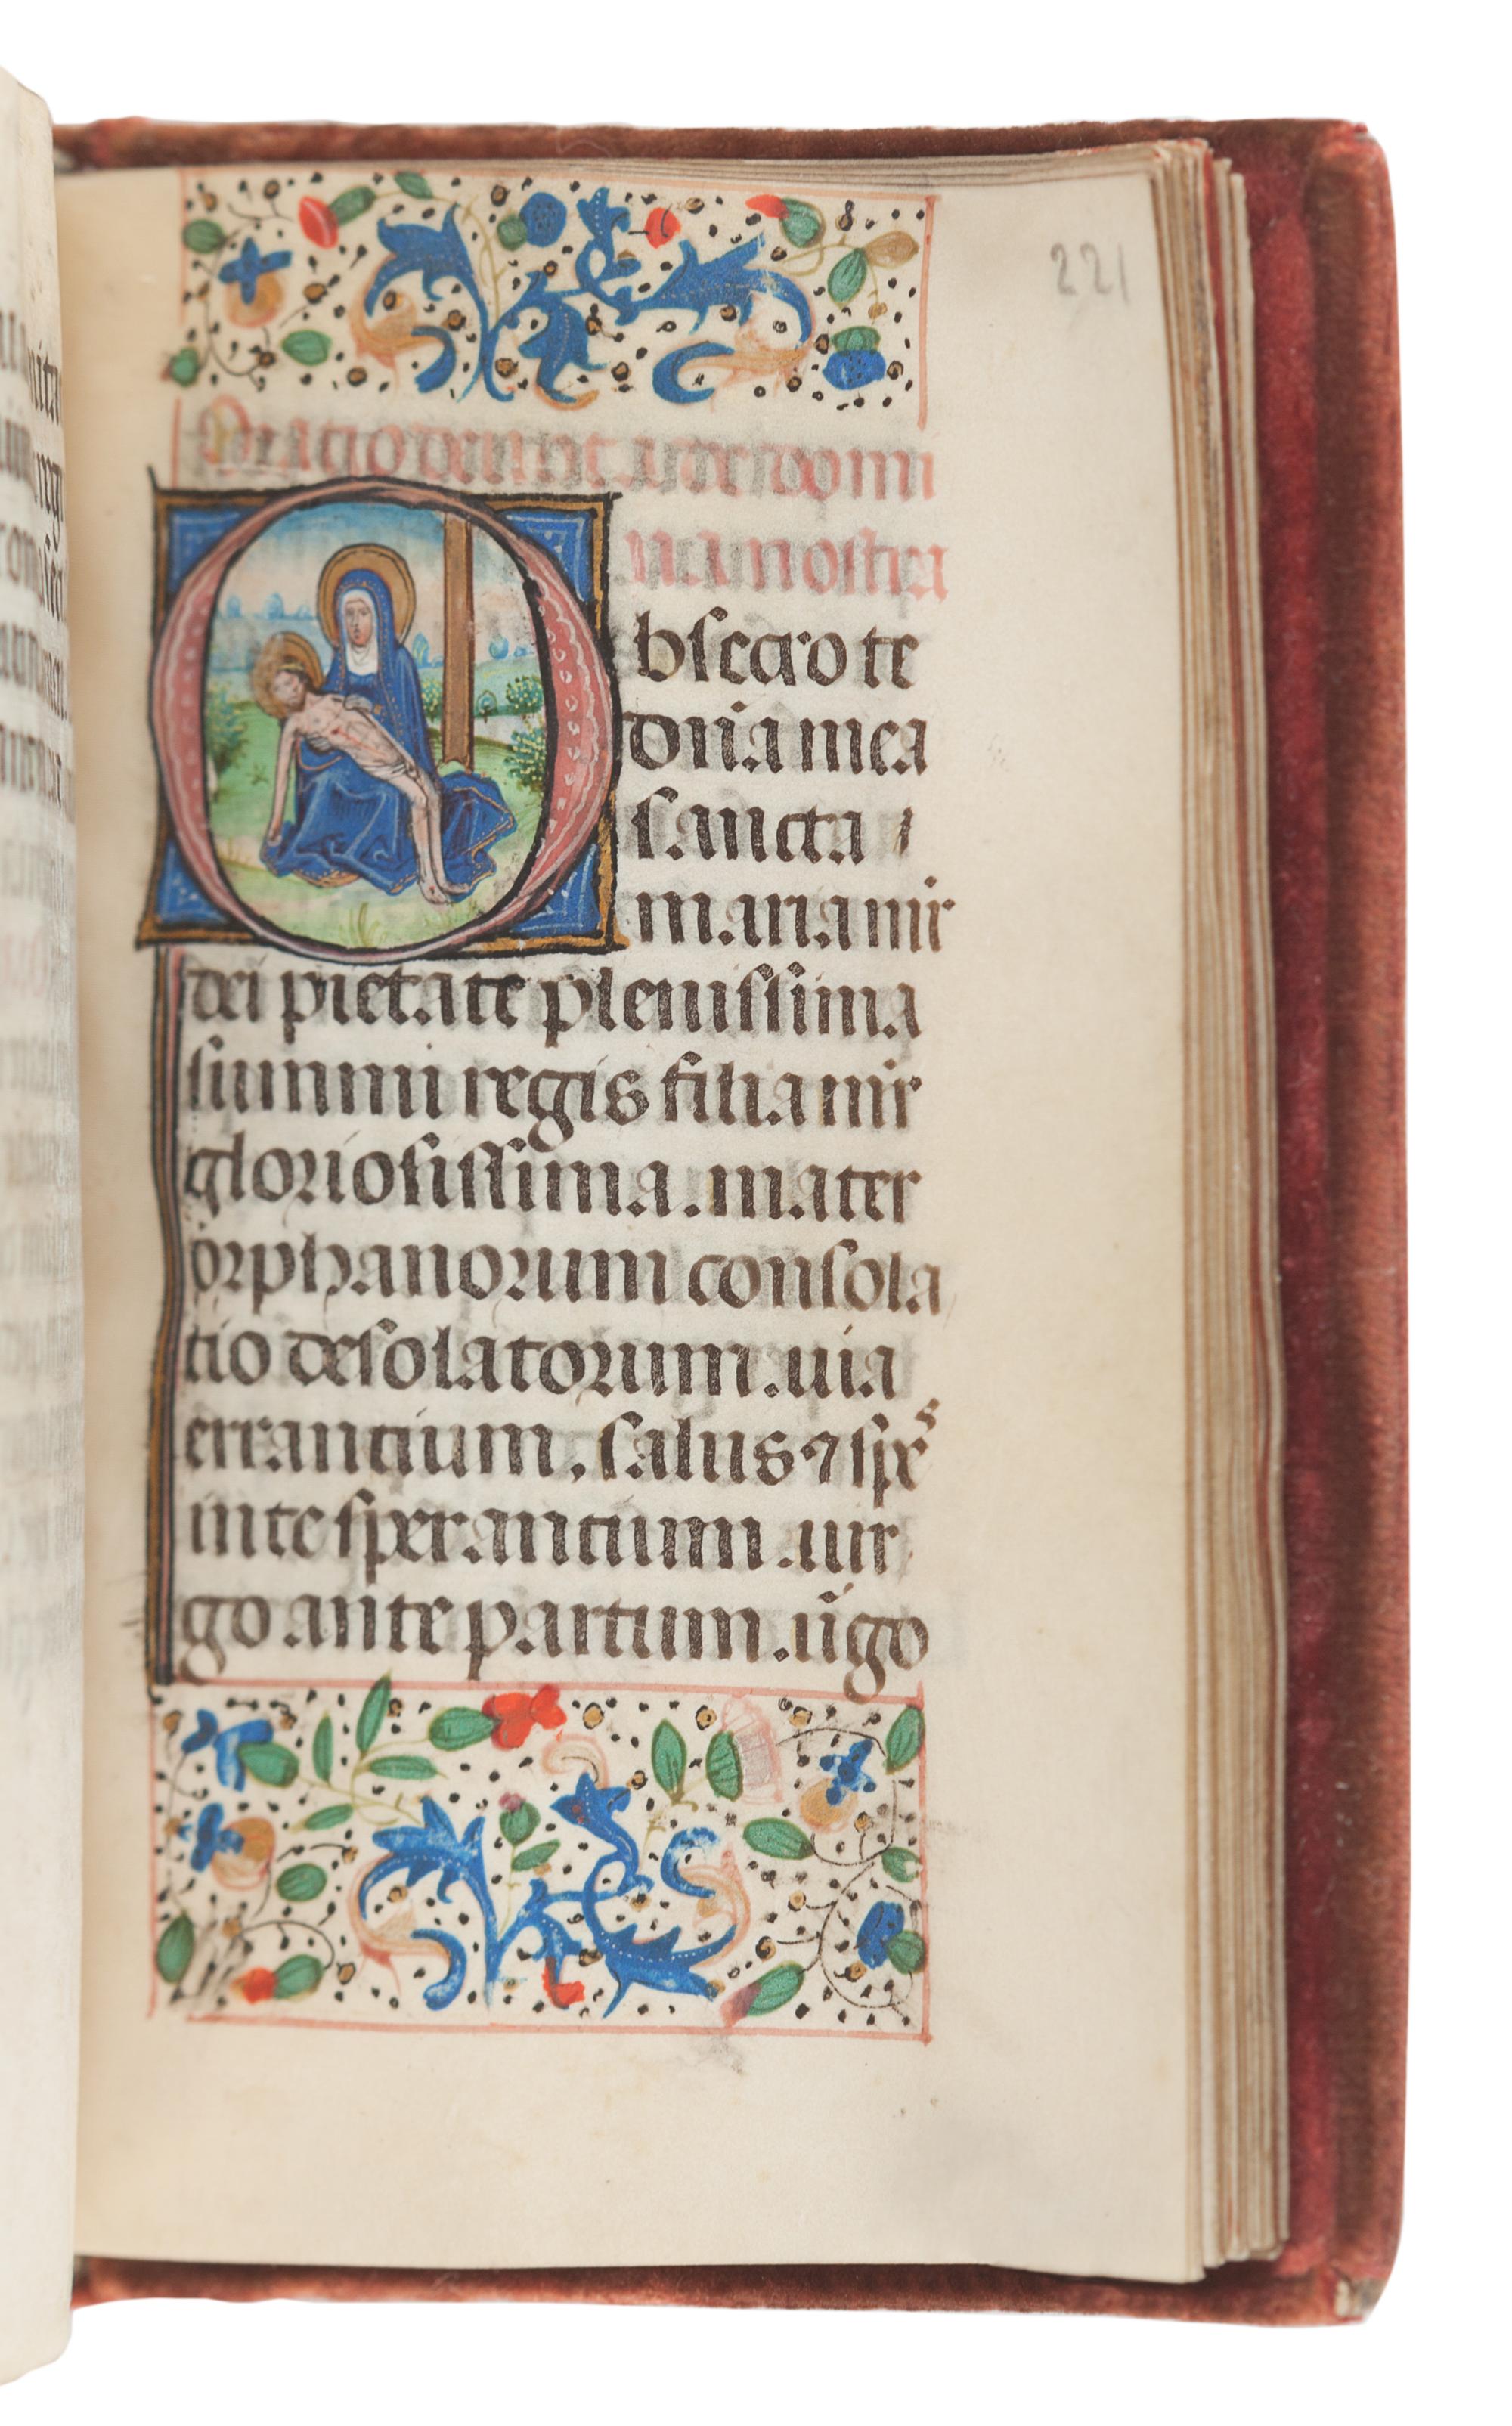 221
Oratio deuote ad domi
nam nostra
Obsecro te
dña mea
sancta
maria mr̄
dei pietate plenissima
summi regis filia mr̄
gloriosissima. mater
orphanorum consola
tio desolatorum. uia
errantium. salus ⁊ spes
in te sperantium. uir
go ante partum. uigo